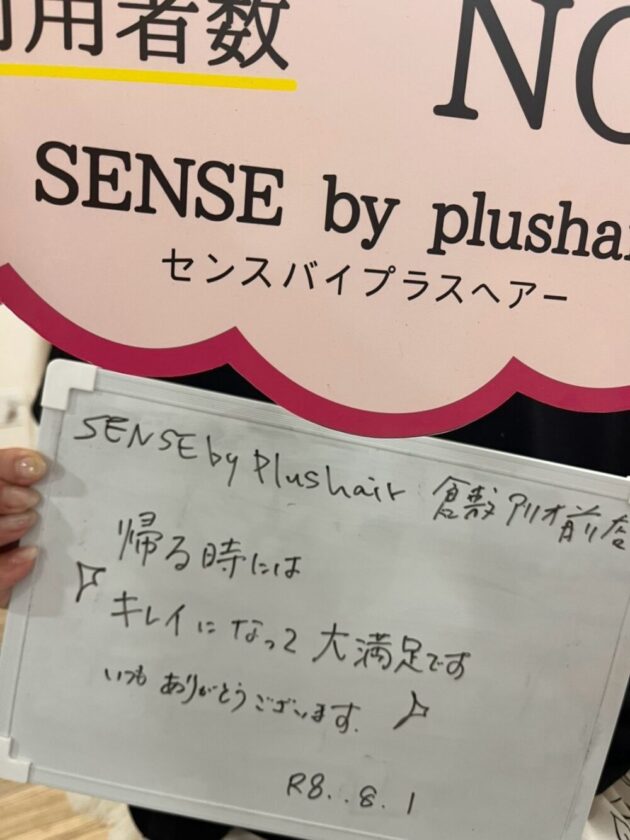 用者数
NO
SENSE by plushai
センスバイプラスヘアー
SENSE by Plushair 倉敷アリオ前店
帰る時には
「キレイになって大満足です
いつもありがとうございます。」
R8..8.1